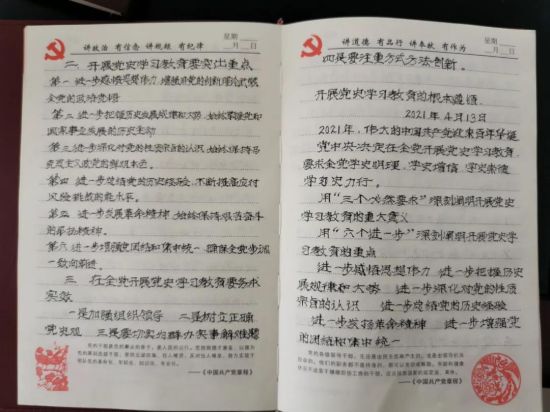 讲政治 有信念 讲规矩 有纪律
星期
月 日
二、开展党史学习教育要突出重点
第一 进一步感悟思想伟力 增强用党的创新理论武装
全党的政治自觉
第二 进一步把握历史发展规律和大势,始终掌握党和
国家事业发展的历史主动
第三 进一步深化对党的性质宗旨的认识,始终保持马
克思主义政党的鲜明本色
第四 进一步总结党的历史经验,不断提高应对
风险挑战的能水平
第五 进一步发扬革命精神,始终保持艰苦奋斗
的昂扬精神。
第六 进一步增强党的团结和集中统一,确保全党步调
一致向前进。
三、在全党开展党史学习教育要务求
实效
一是加强组织领导 二是树立正确
党史观 三是要切实为群众办实事解难题
——《中国共产党章程》
讲道德 有品行 讲奉献 有作为
星期
月 日
四是要注重方式方法创新。
开展党史学习教育的根本遵循
2021年4月13日
2021年,伟大的中国共产党迎来百年华诞
党中央决定在全党开展党史学习教育
要求全党学史明理,学史增信,学史崇德
学史力行。
用“三个必然要求”深刻阐明开展党史学
习教育的重大意义
用“六个进一步”深刻阐明开展党史学
习教育的重点
进一步感悟思想伟力 进一步把握历史
发展规律和大势 进一步深化对党的性质
宗旨的认识 进一步总结党的历史经验
进一步发扬革命精神 进一步增强党
的团结和集中统一
——《中国共产党章程》